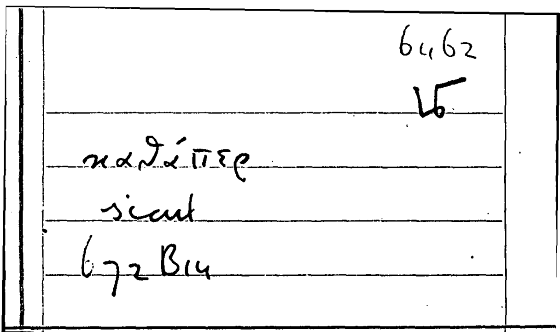 64b2
καθάπερ
sicut
672 B14